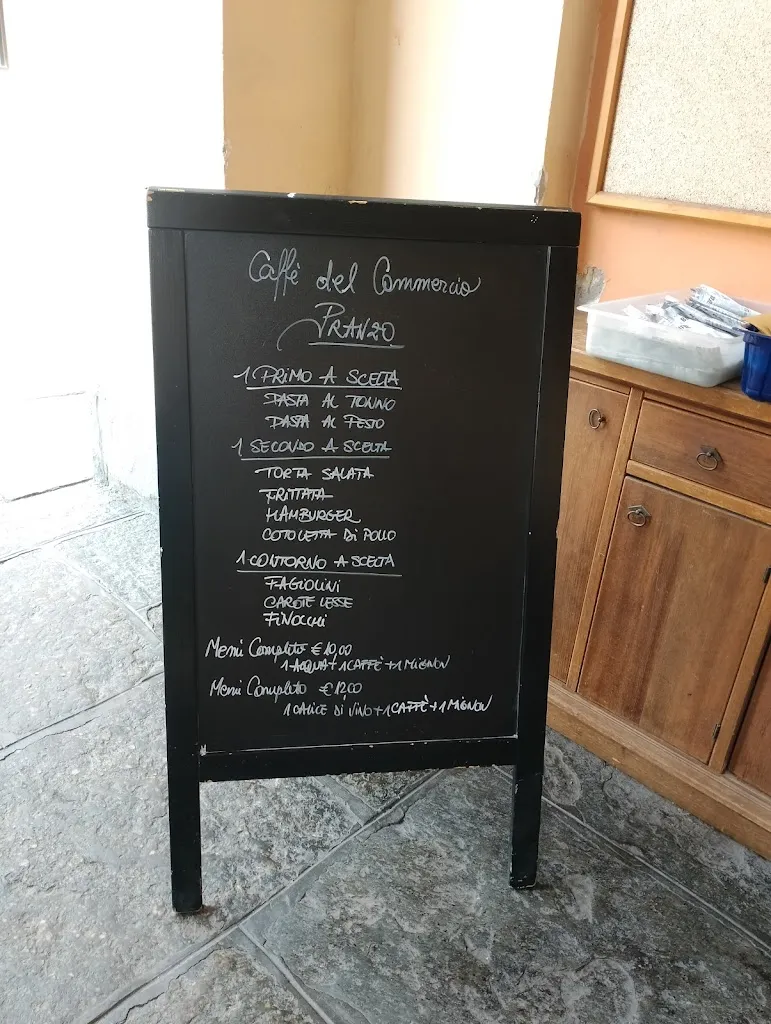 Caffè del Commercio
PRANZO
1 PRIMO A SCELTA
PASTA AL TONNO
PASTA AL PESTO
1 SECONDO A SCELTA
TORTA SALATA
FRITTATA
HAMBURGER
COTOLETTA DI POLLO
1 CONTORNO A SCELTA
FAGIOLINI
CAROTE LESSE
FINOCCHI
Menù Completo € 10,00
1 ACQUA + 1 CAFFÈ + 1 MIGNON
Menù Completo € 12,00
1 CALICE DI VINO + 1 CAFFÈ + 1 MIGNON